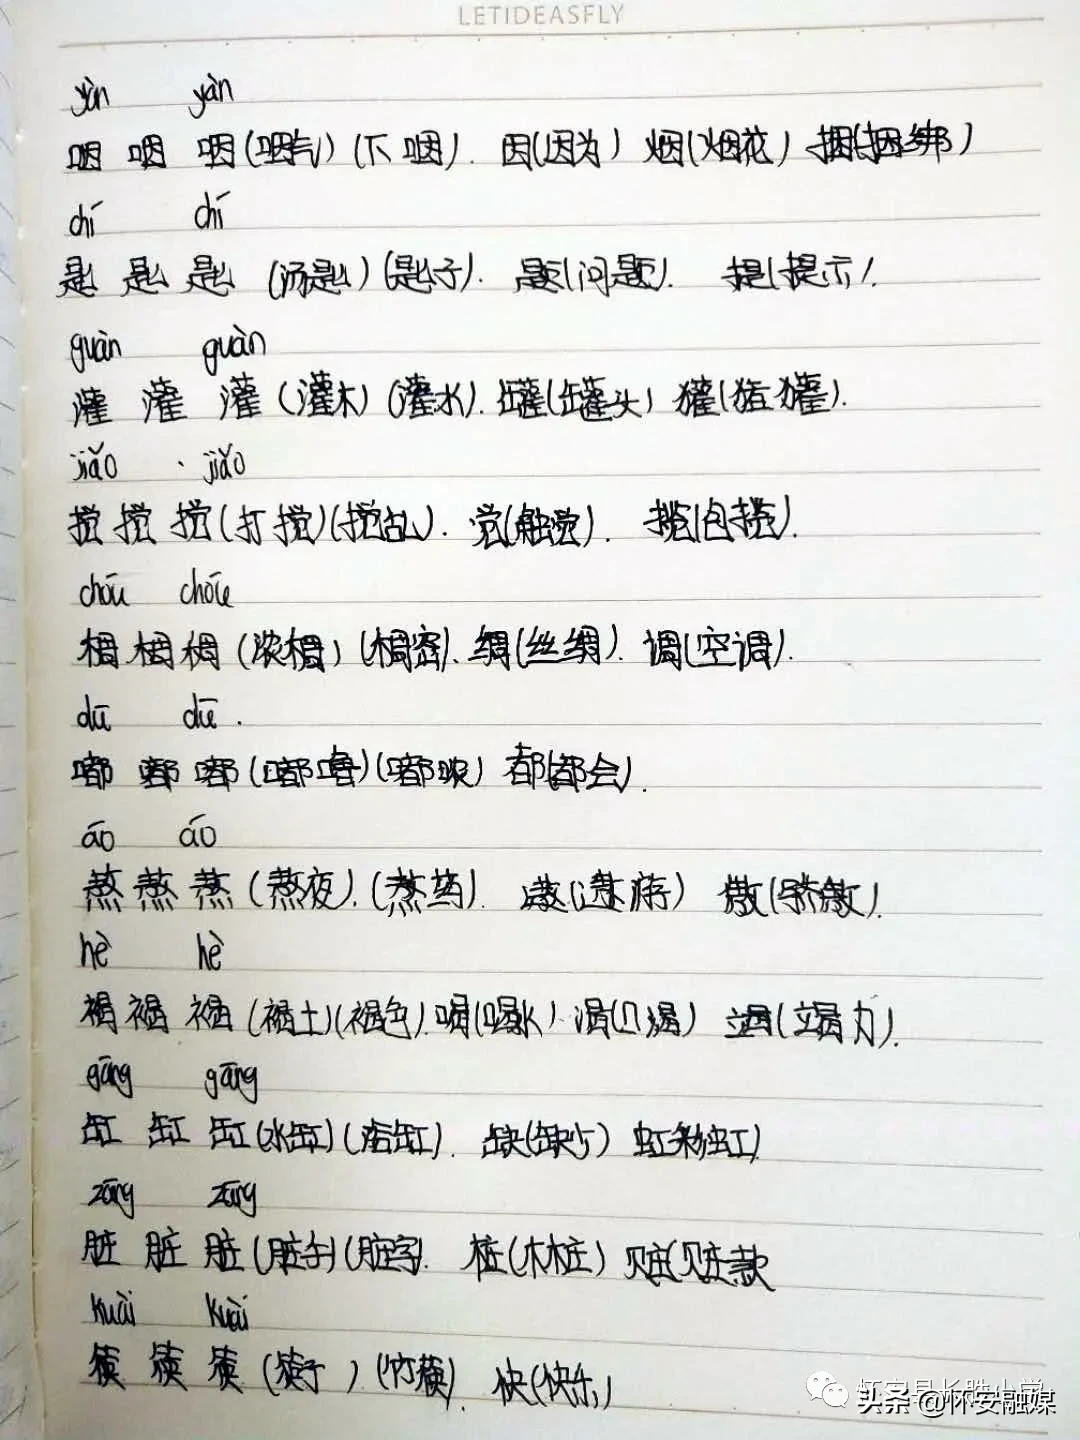 LETIDEASFLY
yàn yàn
咽 咽 咽(咽气)(下咽). 因(因为) 烟(烟花) 捆(捆绑)
chí chí
匙 匙 匙 (汤匙)(匙子). 题(问题). 提(提示).
guàn guàn
灌 灌 灌 (灌木)(灌水). 罐(罐头) 獾(猪獾).
jiǎo jiǎo
搅 搅 搅(打搅)(搅乱). 觉(触觉). 揽(包揽).
chóu chóu
稠 稠 稠 (浓稠)(稠密). 绸(丝绸). 调(空调).
dū dū.
嘟 嘟 嘟(嘟噜)(嘟哝) 都(都会).
áo áo
熬 熬 熬 (熬夜).(熬药). 遨(遨游) 傲(骄傲).
hè hè
褐 褐 褐 (褐土)(褐色). 喝(喝水) 渴(口渴) 竭(竭力).
gāng gāng
缸 缸 缸(水缸)( 缸). 缺(缺少) 虹(彩虹)
zāng zāng
脏 脏 脏(脏 )(脏字). 桩(木桩) 赃(赃款
kuài kuài
筷 筷 筷 (筷子)(竹筷). 快(快乐)
怀安县长胜小学
头条 @怀安融媒